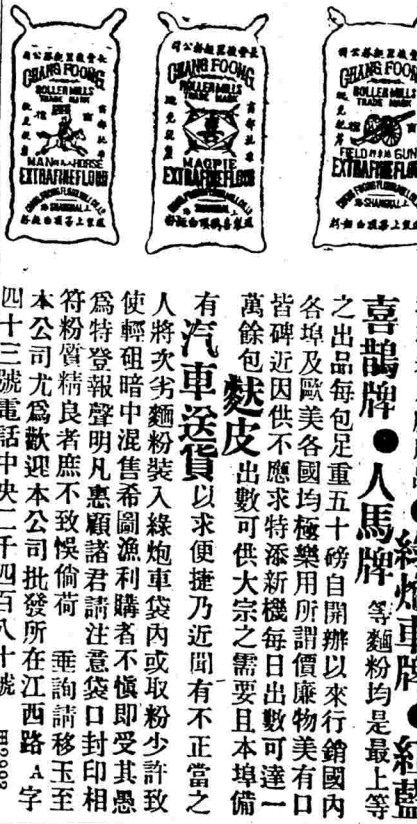 長豐機器麵粉公司
CHANG FOONG
ROLLER MILLS
TRADE MARK
MAN AND HORSE
EXTRA FINE FLOUR
SHANGHAI
CHANG FOONG
ROLLER MILLS
TRADE MARK
喜
MAGPIE
EXTRA FINE FLOUR
SHANGHAI
CHANG FOONG
ROLLER MILLS
TRADE MARK
FIELD GUN
EXTRA FINE FL
SHANGHAI
●綠炮車牌●紅藍
喜鵲牌●人馬牌等麵粉均是最上等
之出品每包足重五十磅自開辦以來行銷國內
各埠及歐美各國均極樂用所謂價廉物美有口
皆碑近因供不應求特添新機每日出數可達一
萬餘包麩皮出數可供大宗之需要且本埠備
有汽車送貨以求便捷乃近聞有不正當之
人將次劣麵粉裝入綠炮車袋內或取粉少許致
使輕砠暗中混售希圖漁利購者不愼即受其愚
爲特登報聲明凡惠顧諸君請注意袋口封印相
符粉質精良者庶不致悞倘荷 垂詢請移玉至
本公司尤爲歡迎本公司批發所在江西路A字
四十三號電話中央二千四百八十號